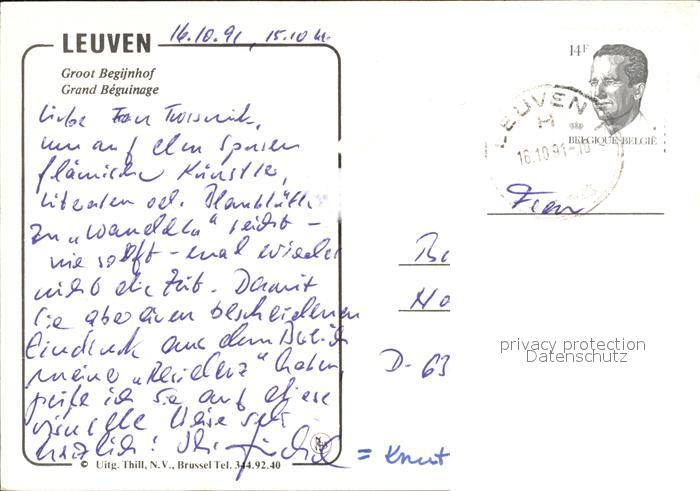 LEUVEN 16.10.91, 15.10 h.
Groot Begijnhof
Grand Béguinage
Liebe Frau
um auf den Spuren
flämischer Künstler,
Literaten od.
zu „wandeln“ reicht -
wie so oft - mal wieder
nicht die Zeit. Damit
Sie aber einen bescheidenen
Eindruck aus dem Bereich
meiner „Residenz“ haben,
grüße ich Sie auf diese
visuelle Weise sehr
herzlich! Ihr
= Knut
© Uitg. Thill, N.V., Brussel Tel. 344.92.40
14F
BELGIQUE-BELGIË
LEUVEN
H
16.10.91-
Frau
Be
No
D-63
privacy protection
Datenschutz